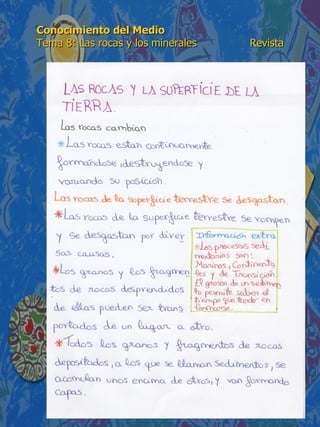 Conocimiento del Medio
Tema 8: Las rocas y los minerales Revista
LAS ROCAS Y LA SUPERFICIE DE LA
TIERRA.
Las rocas cambian
*Las rocas están continuamente
formándose, destruyéndose y
variando su posición.
Las rocas de la superficie terrestre se desgastan.
*Las rocas de la superficie terrestre se rompen
y se desgastan por diver
sas causas.
*Los granos y los fragmen
tos de rocas desprendidos
de ellas pueden ser trans
portados de un lugar a otro.
Información extra
*Los procesos sedi
mentarios son:
Marinos, Continenta
les y de Transición.
El grosor de un sedimen
to permite saber el
tiempo que tardó en
formarse.
*Todos los granos y fragmentos de rocas
depositados, a los que se llaman Sedimentos, se
acumulan unos encima de otros, y van formando
capas.